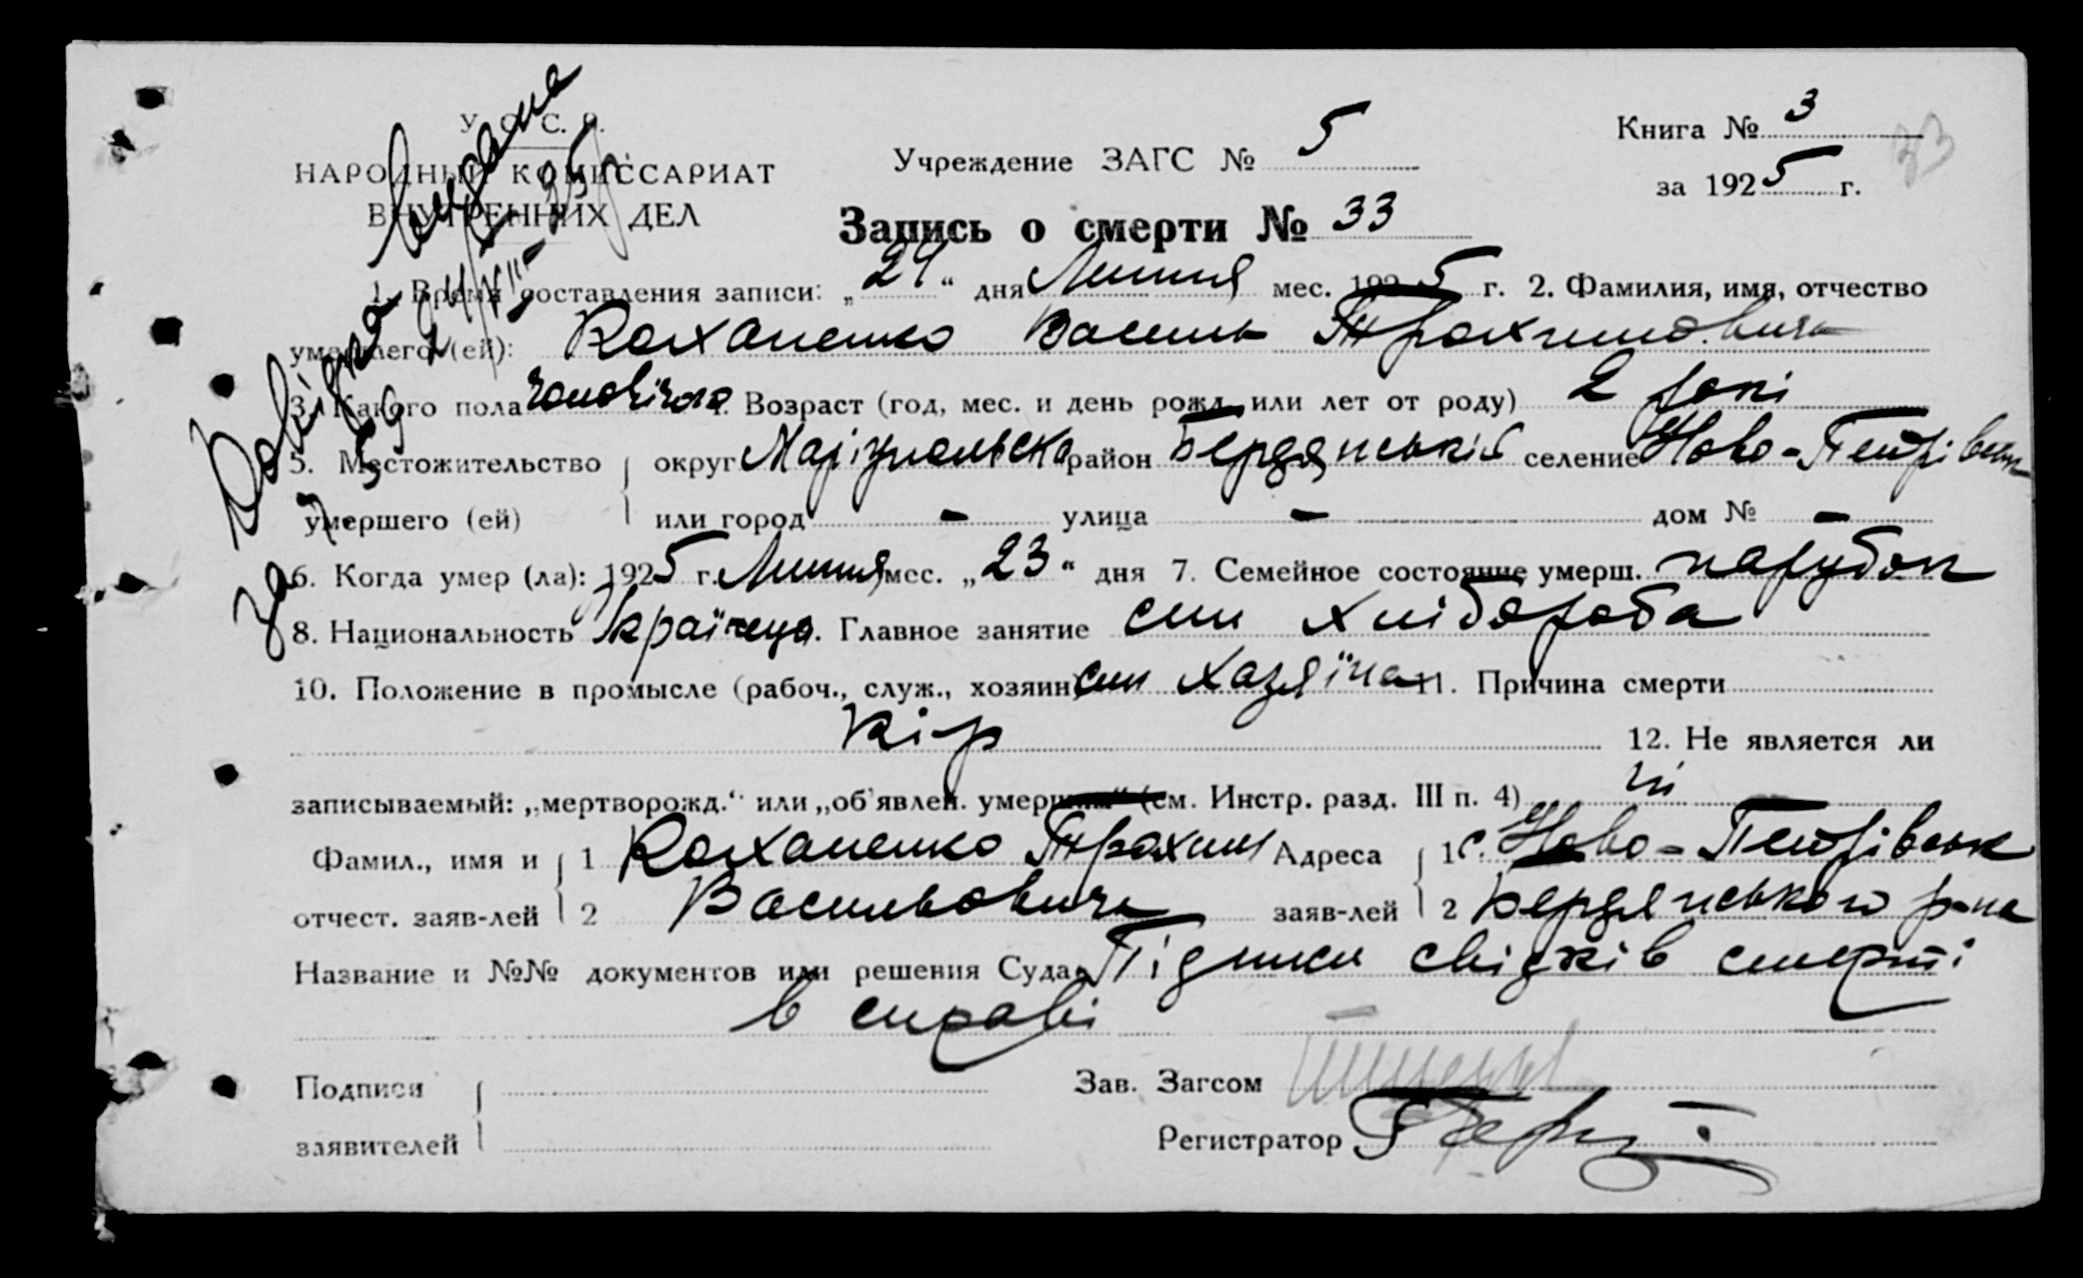 У. С. С. Р.
НАРОДНЫЙ КОМИССАРИАТ
ВНУТРЕННИХ ДЕЛ
Учреждение ЗАГС № 5
Книга № 3
за 1925 г.
33
Запись о смерти № 33
Довідка видана
за № 59 24/VII-25 р.
1. Время составления записи: „24“ дня Липня мес. 1925 г. 2. Фамилия, имя, отчество
умершего (ей): Коханенко Василь Трохимович
3. Какого пола чоловічого 4. Возраст (год, мес. и день рожд. или лет от роду) 2 роки
5. Местожительство округ Маріупольська район Бердянський селение Ново-Петрівськ
умершего (ей) или город - улица - дом № -
6. Когда умер (ла): 1925 г. Липня мес. „23“ дня 7. Семейное состояние умерш. парубок
8. Национальность Українець 9. Главное занятие син хлібороба
10. Положение в промысле (рабоч., служ., хозяин) син хазяїна 11. Причина смерти
кір 12. Не является ли
записываемый: „мертворожд.“ или „об'явлен. умершим“ (см. Инстр. разд. III п. 4) ні
Фамил., имя и 1 Коханенко Трохим Адреса 1 с. Ново-Петрівськ
отчест. заяв-лей 2 Васильович заяв-лей 2 Бердянського р-на
Название и №№ документов или решения Суда Підписи свідків смерті
в справі
Подписи Зав. Загсом
заявителей Регистратор